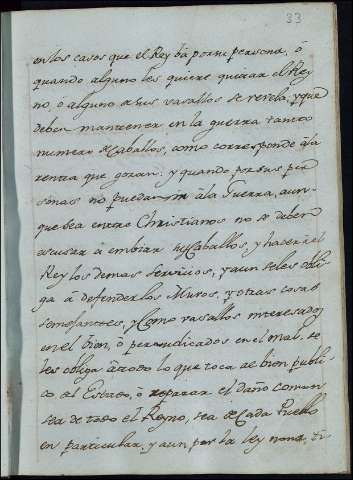 33
en los casos que el Rey bá por su persona, ó
quando alguno les quiere quitar el Rey
no, ó alguno de sus vasallos se revela, y que
deben mantener en la guerra tanto
numero de Caballos, como corresponde á la
renta que gozan: y quando por sus per
sonas no puedan ir á la Guerra, aun
que sea entre Christianos no se deben
escusar á embiar sus Caballos, y hacer al
Rey los demas servicios, y aun se les obli
ga á defender los Muros, y otras cosas
semejantes, y como vasallos interesados
en el bien, ó perjudicados en el mal, se
les obliga á todo lo que toca al bien publi
co del Estado, ó reparar el daño comun
sea de todo el Reyno, sea de Cada Pueblo
en particular, y aun por la ley nona, ti